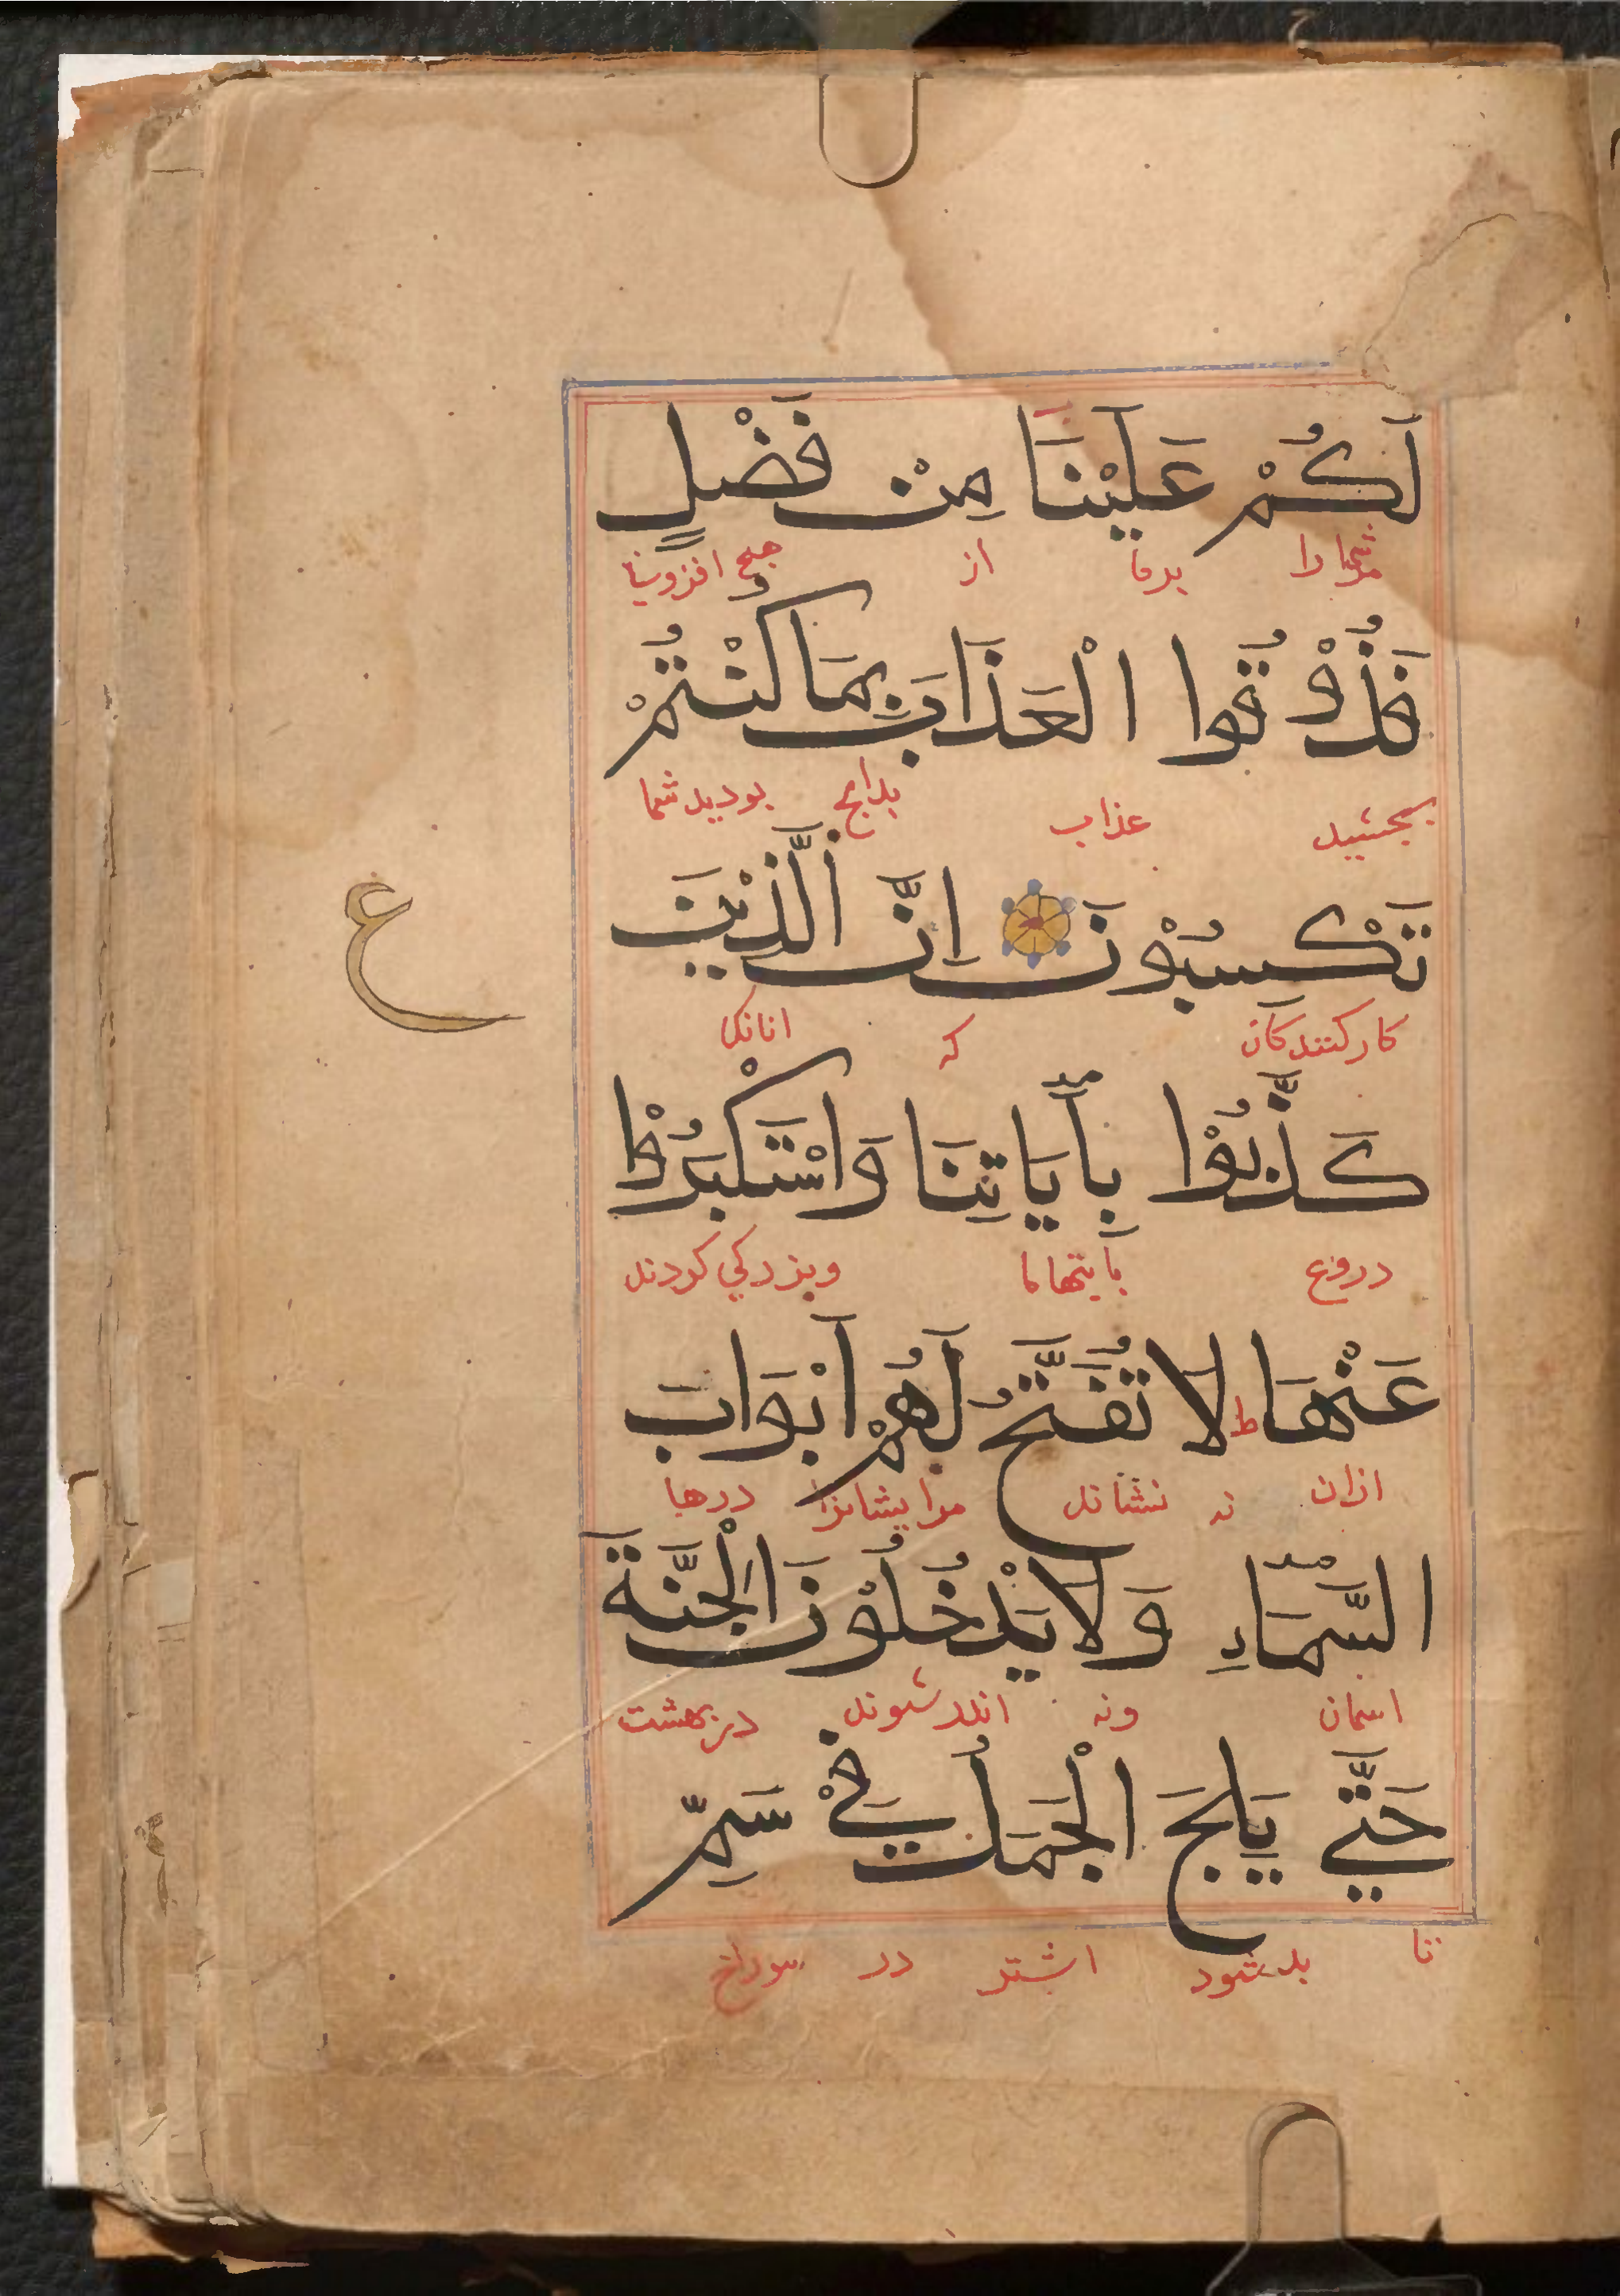 لَكُمْ عَلَيْنَا مِنْ فَضْلٍ
شما را برما از هیچ افزونیا
فَذُوْقُوا الْعَذَابَ بِمَا كُنْتُمْ
بچشید عذاب بدانچ بودید شما
تَكْسِبُوْنَ اِنَّ الَّذِيْنَ
کارکنندکان که انانکا
ع
كَذَّبُوْا بِأَيَاتِنَا وَاسْتَكْبَرُوْا
دروغ بآیتهاما وبزرکی کردند
عَنْهَا ط لَا تُفَتَّحُ لَهُمْ اَبْوَابَ
ازان نه مرایشانرا درها
السَّمَاءِ وَلَا يَدْخُلُوْنَ الْجَنَّةَ
اسمان ونه اندرشوند در بهشت
حَتَّي يَلِجَ الْجَمَلُ فِيْ سَمِّ
تا بدشود اشتر در سوراخ